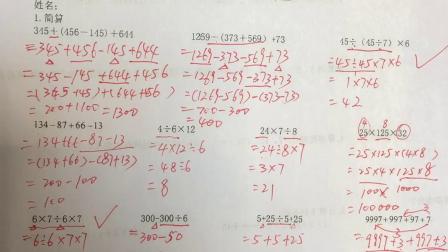 姓名:
1.简算
345+(456-145)+644
=345+456-145+644
=345-145+644+456
=(345-145)+(644+456)
=200+1100=1300
1269-(373+569)+73
=1269-373-569+73
=1269-569-373+73
=(1269-569)-(373-73)
=700-300
=400
45÷(45÷7)×6
=45÷45×7×6
=1×7×6
=42
134-87+66-13
=134+66-87-13
=(134+66)-(87+13)
=200-100
=100
4÷6×12
=4×12÷6
=48÷6
=8
24×7÷8
=24÷8×7
=3×7
=21
4 8
25×125×32
=25×125×(4×8)
=25×4×125×8
=100×1000
=100000
6×7÷6×7
=6÷6×7×7
300-300÷6
=300-50
5+25÷5+25
=5+5+25
9997+997+97+7
=9997+3+997+3